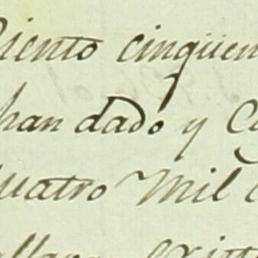 Ciento cinquen
han dado y C
uatro Mil c